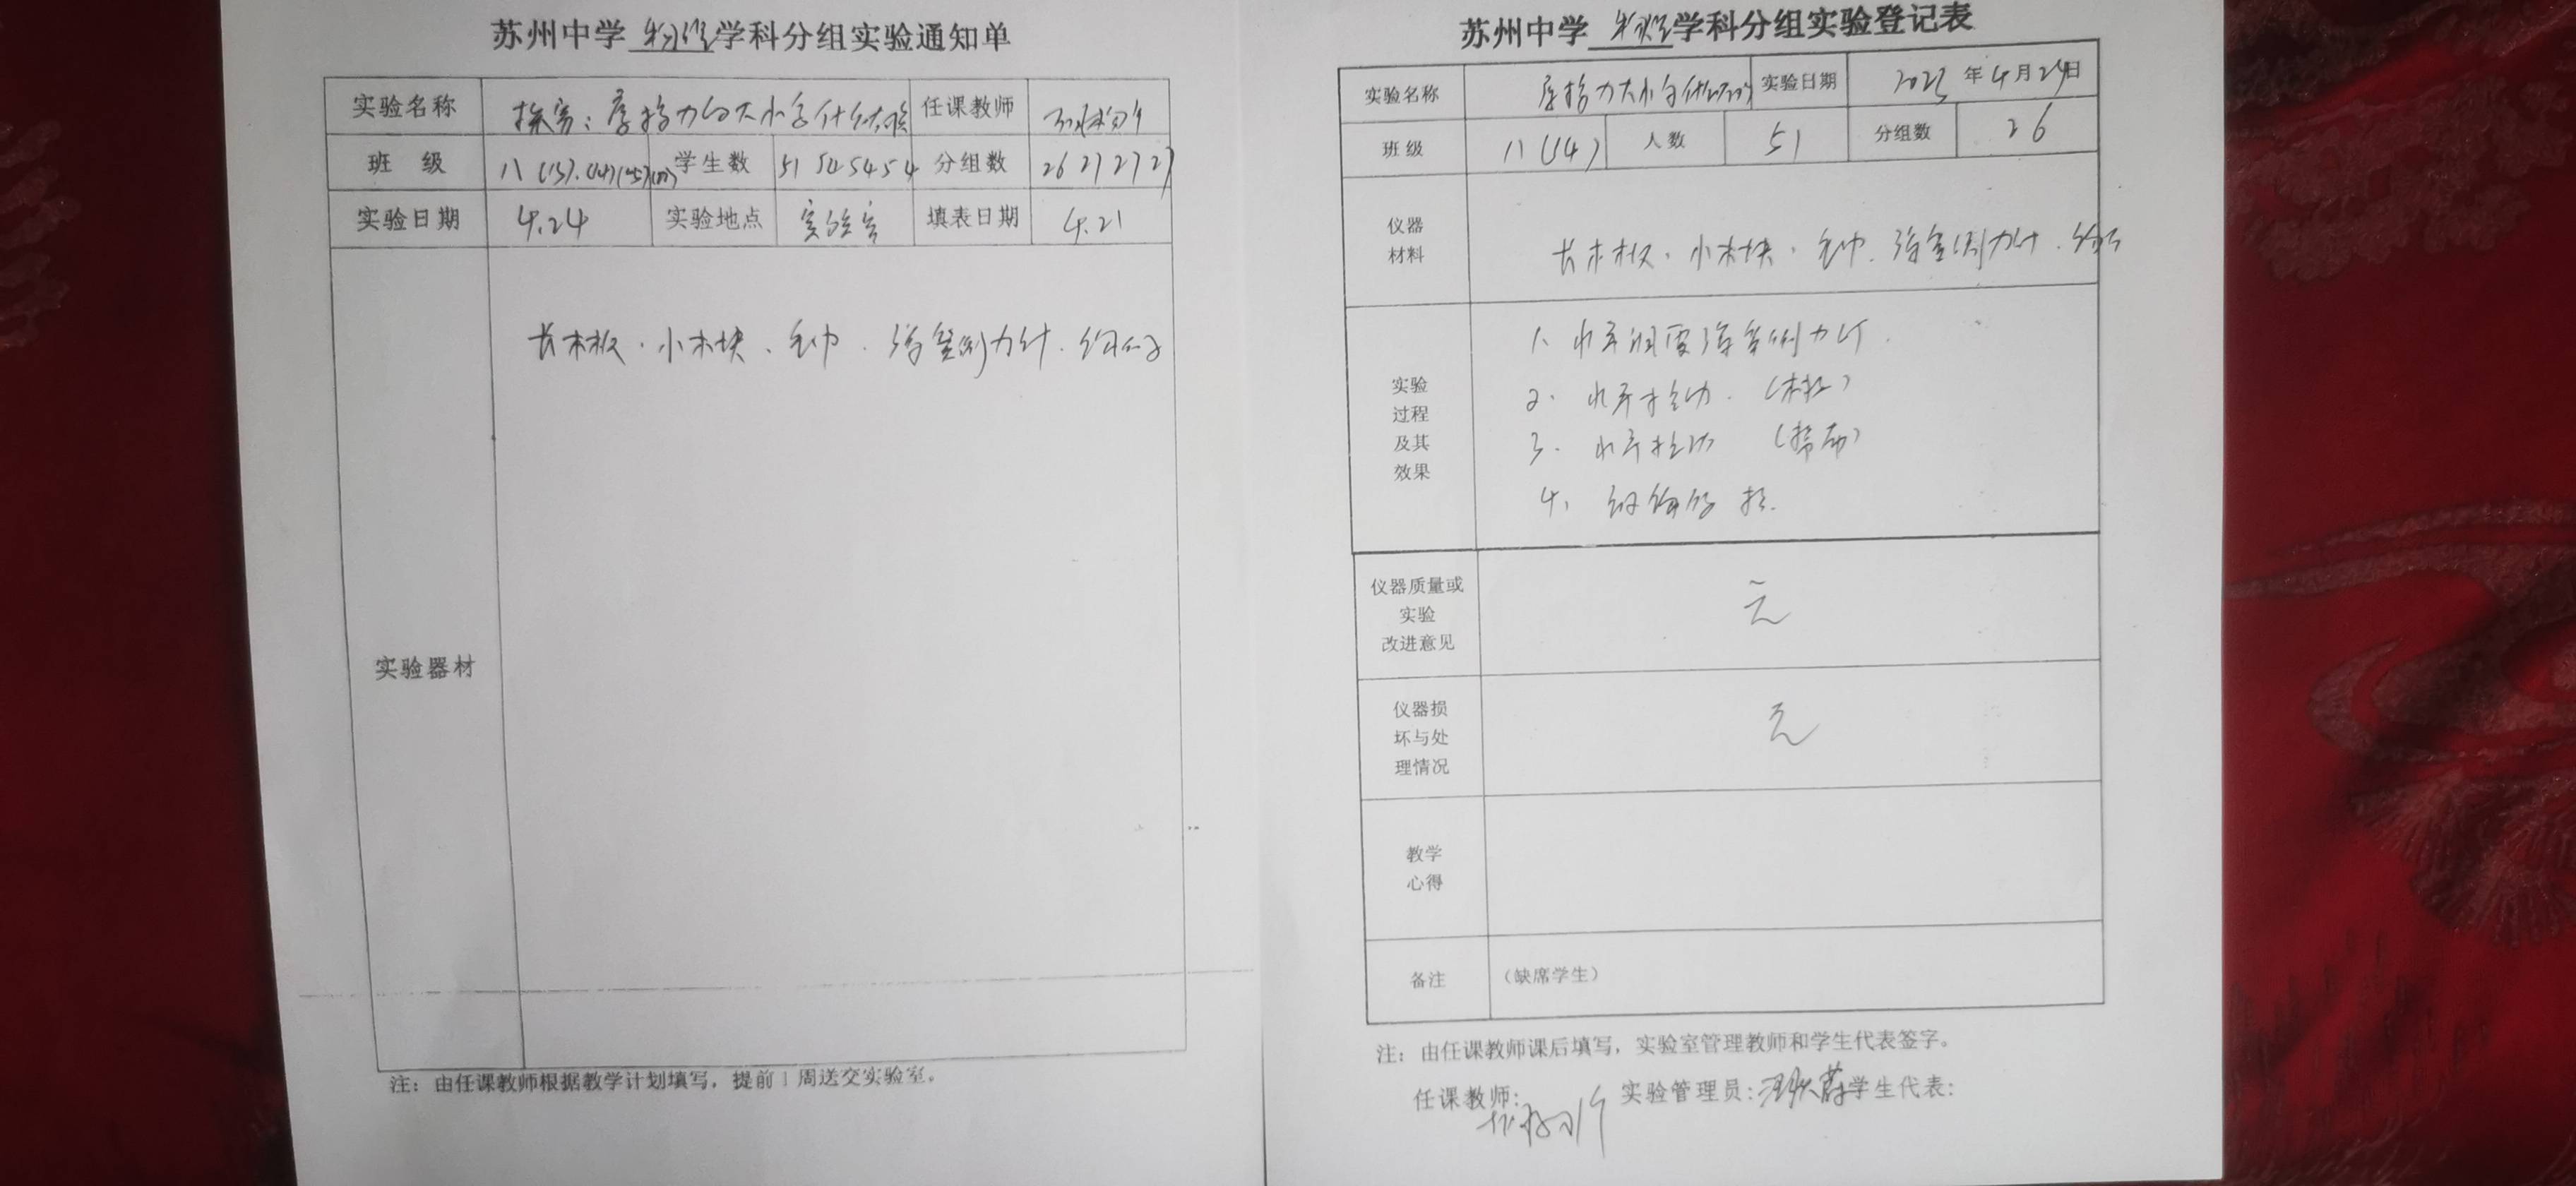 苏州中学 物理 学科分组实验通知单
实验名称 探究：摩擦力的大小与什么有关 任课教师
班 级 八(13).(14)(15)(17) 学生数 51 54 54 54 分组数 26 27 27 27
实验日期 4.24 实验地点 实验室 填表日期 4.21
实验器材 长木板、小木块、毛巾、弹簧测力计、钩码
注：由任课教师根据教学计划填写，提前1周送交实验室。
苏州中学 物理 学科分组实验登记表
实验名称 摩擦力大小与什么有关 实验日期 2023年4月24日
班级 八(14) 人数 51 分组数 26
仪器
材料
长木板、小木块、毛巾、弹簧测力计、钩码
实验
过程
及其
效果
1、水平调零弹簧测力计.
2、水平拉动.（木板）
3、水平拉动
4、
仪器质量或
实验
改进意见
无
仪器损
坏与处
理情况
无
教学
心得
备注 （缺席学生）
注：由任课教师课后填写，实验室管理教师和学生代表签字。
任课教师: 实验管理员: 学生代表: